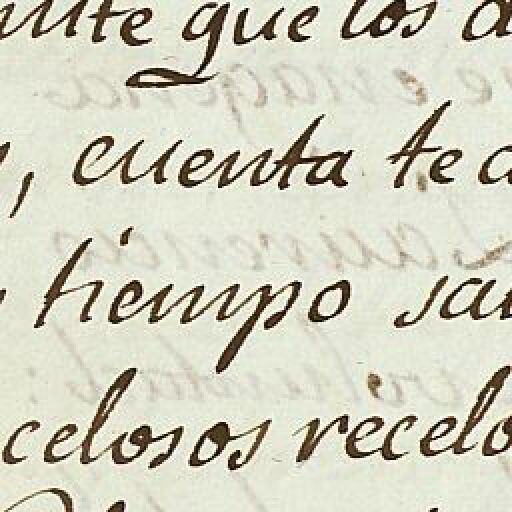 que los
, cuenta te
tiempo
celosos recelo